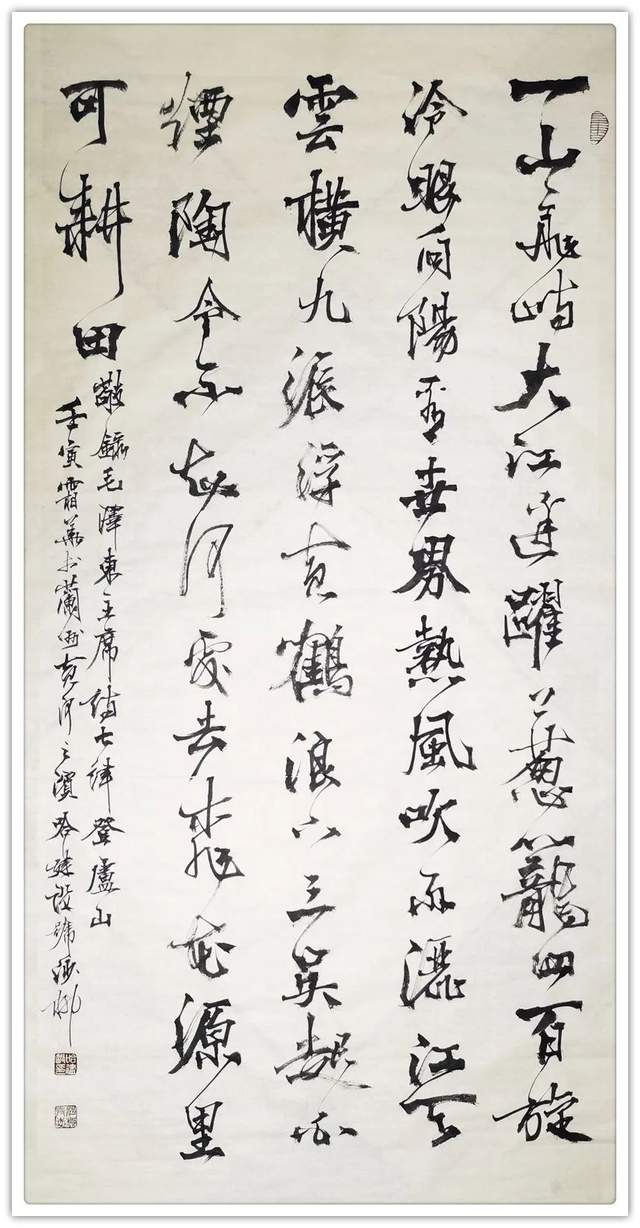 一山飛峙大江邊躍上蔥籠四百旋
冷眼向陽看世界熱風吹雨灑江天
雲橫九派浮黃鶴浪下三吳起白
煙陶令不知何處去桃花源里
可耕田
敬錄毛澤東主席詩七律登廬山
壬寅霜華於蘭州黃河之濱建設號